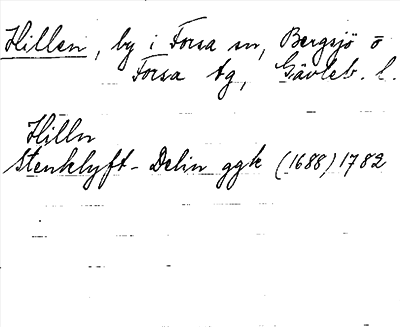 Hillen, by i Forsa sn, Bergsjö o
Forsa tg, Gävleb. l.
Hilln
Stenklyft - Delin ggk (1688) 1782